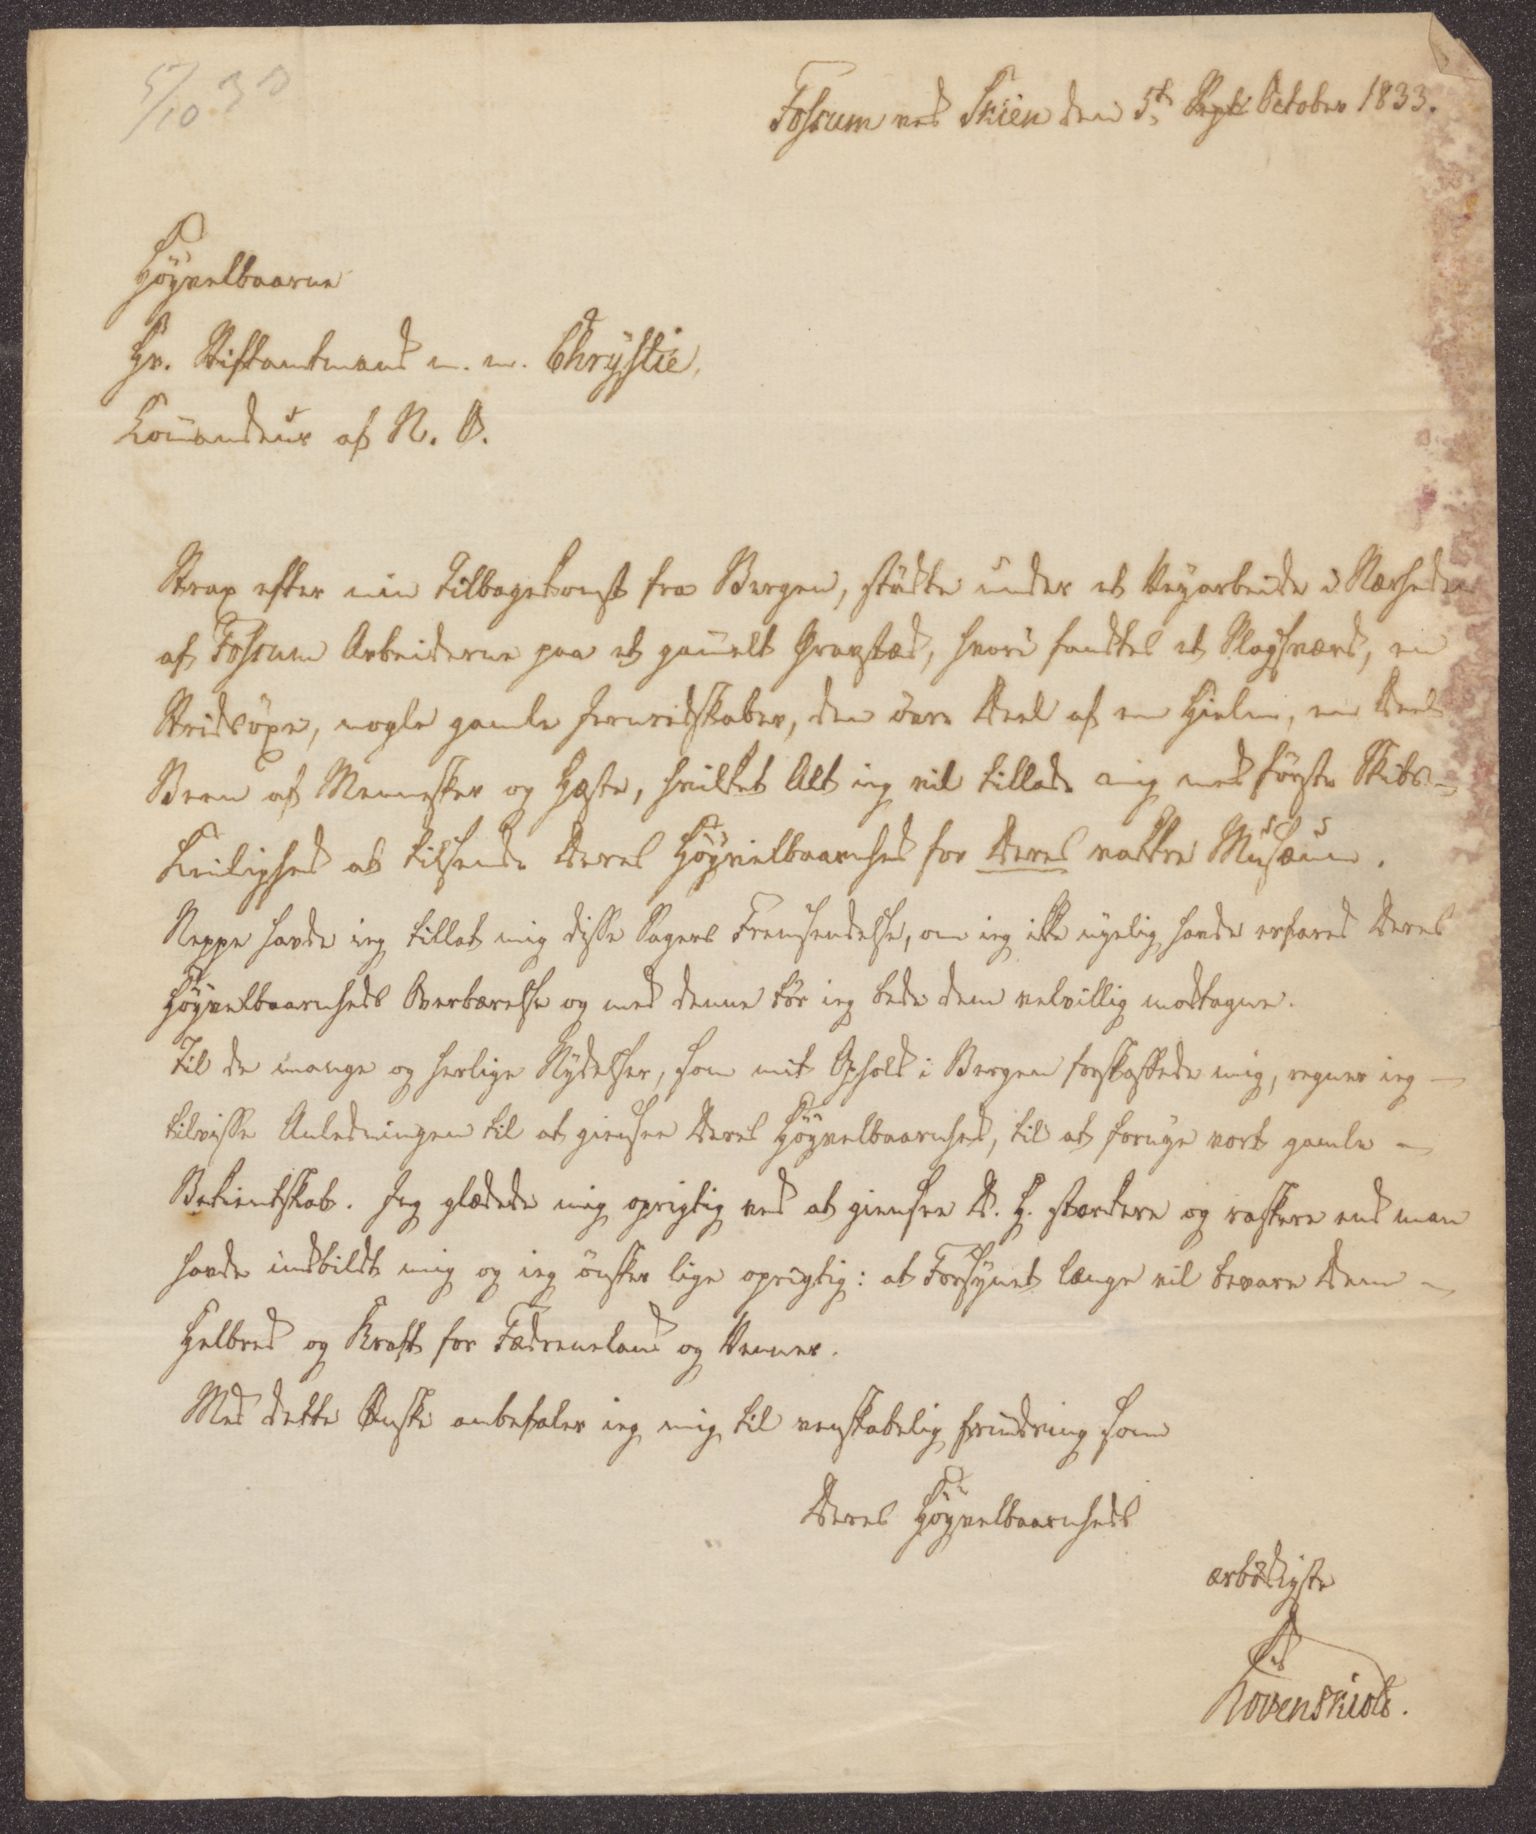 5/10 33
Fossum ved Skien den 5te Sept October 1833.
Høyvelbaarne
Hr. Stiftamtmand m. m. Chrystie,
Com̅andeur af N. O.
Strax efter min Tilbagekomst fra Bergen, stødte under et Veyarbeide i Nærheden
af Fossum Arbeiderne paa et gam̅elt Gravsted, hvori fandtes et Slagsværd, en
Stridsöxe, nogle gamle Jernredskaber, den övre Deel af en Hielm, en Deel
Been af Mennesker og Heste, hvilket Alt ieg vil tillade mig med første Skibs-
Leilighed at tilsende Deres Høyvelbaarnhed for Deres vakkre Musæum.
Neppe havde ieg tilladt mig disse Sagers Fremsendelse, om ieg ikke nyelig havde erfaret Deres
Høyvelbaarnheds Overbærelse og med denne tør ieg bede dem velvillig modtagne.
Til de mange og herlige Nydelser, som mit Ophold i Bergen forskaffede mig, regner ieg -
tilvisse Anledningen til at giensee Deres Høyvelbaarnhed, til at fornye vort gamle -
Bekientskab. Jeg glædede mig oprigtig ved at giensee D. H. stærkere og raskere end man
havde indbildt mig og ieg önsker lige oprigtig: at Forsynet længe vil bevare Dem -
Helbred og Kraft for Fædreneland og Venner.
Med dette Ønske anbefaler ieg mig til venskabelig Erindring som
Deres Høyvelbaarnheds
ærbødigste
Løvenskiold.